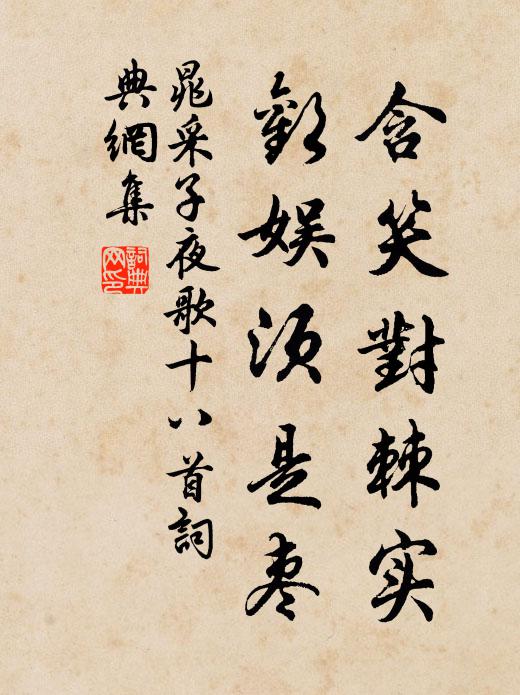 含笑對棘实
歡娱須是枣
晁采子夜歌十八首詞
典網集
詞典
网印